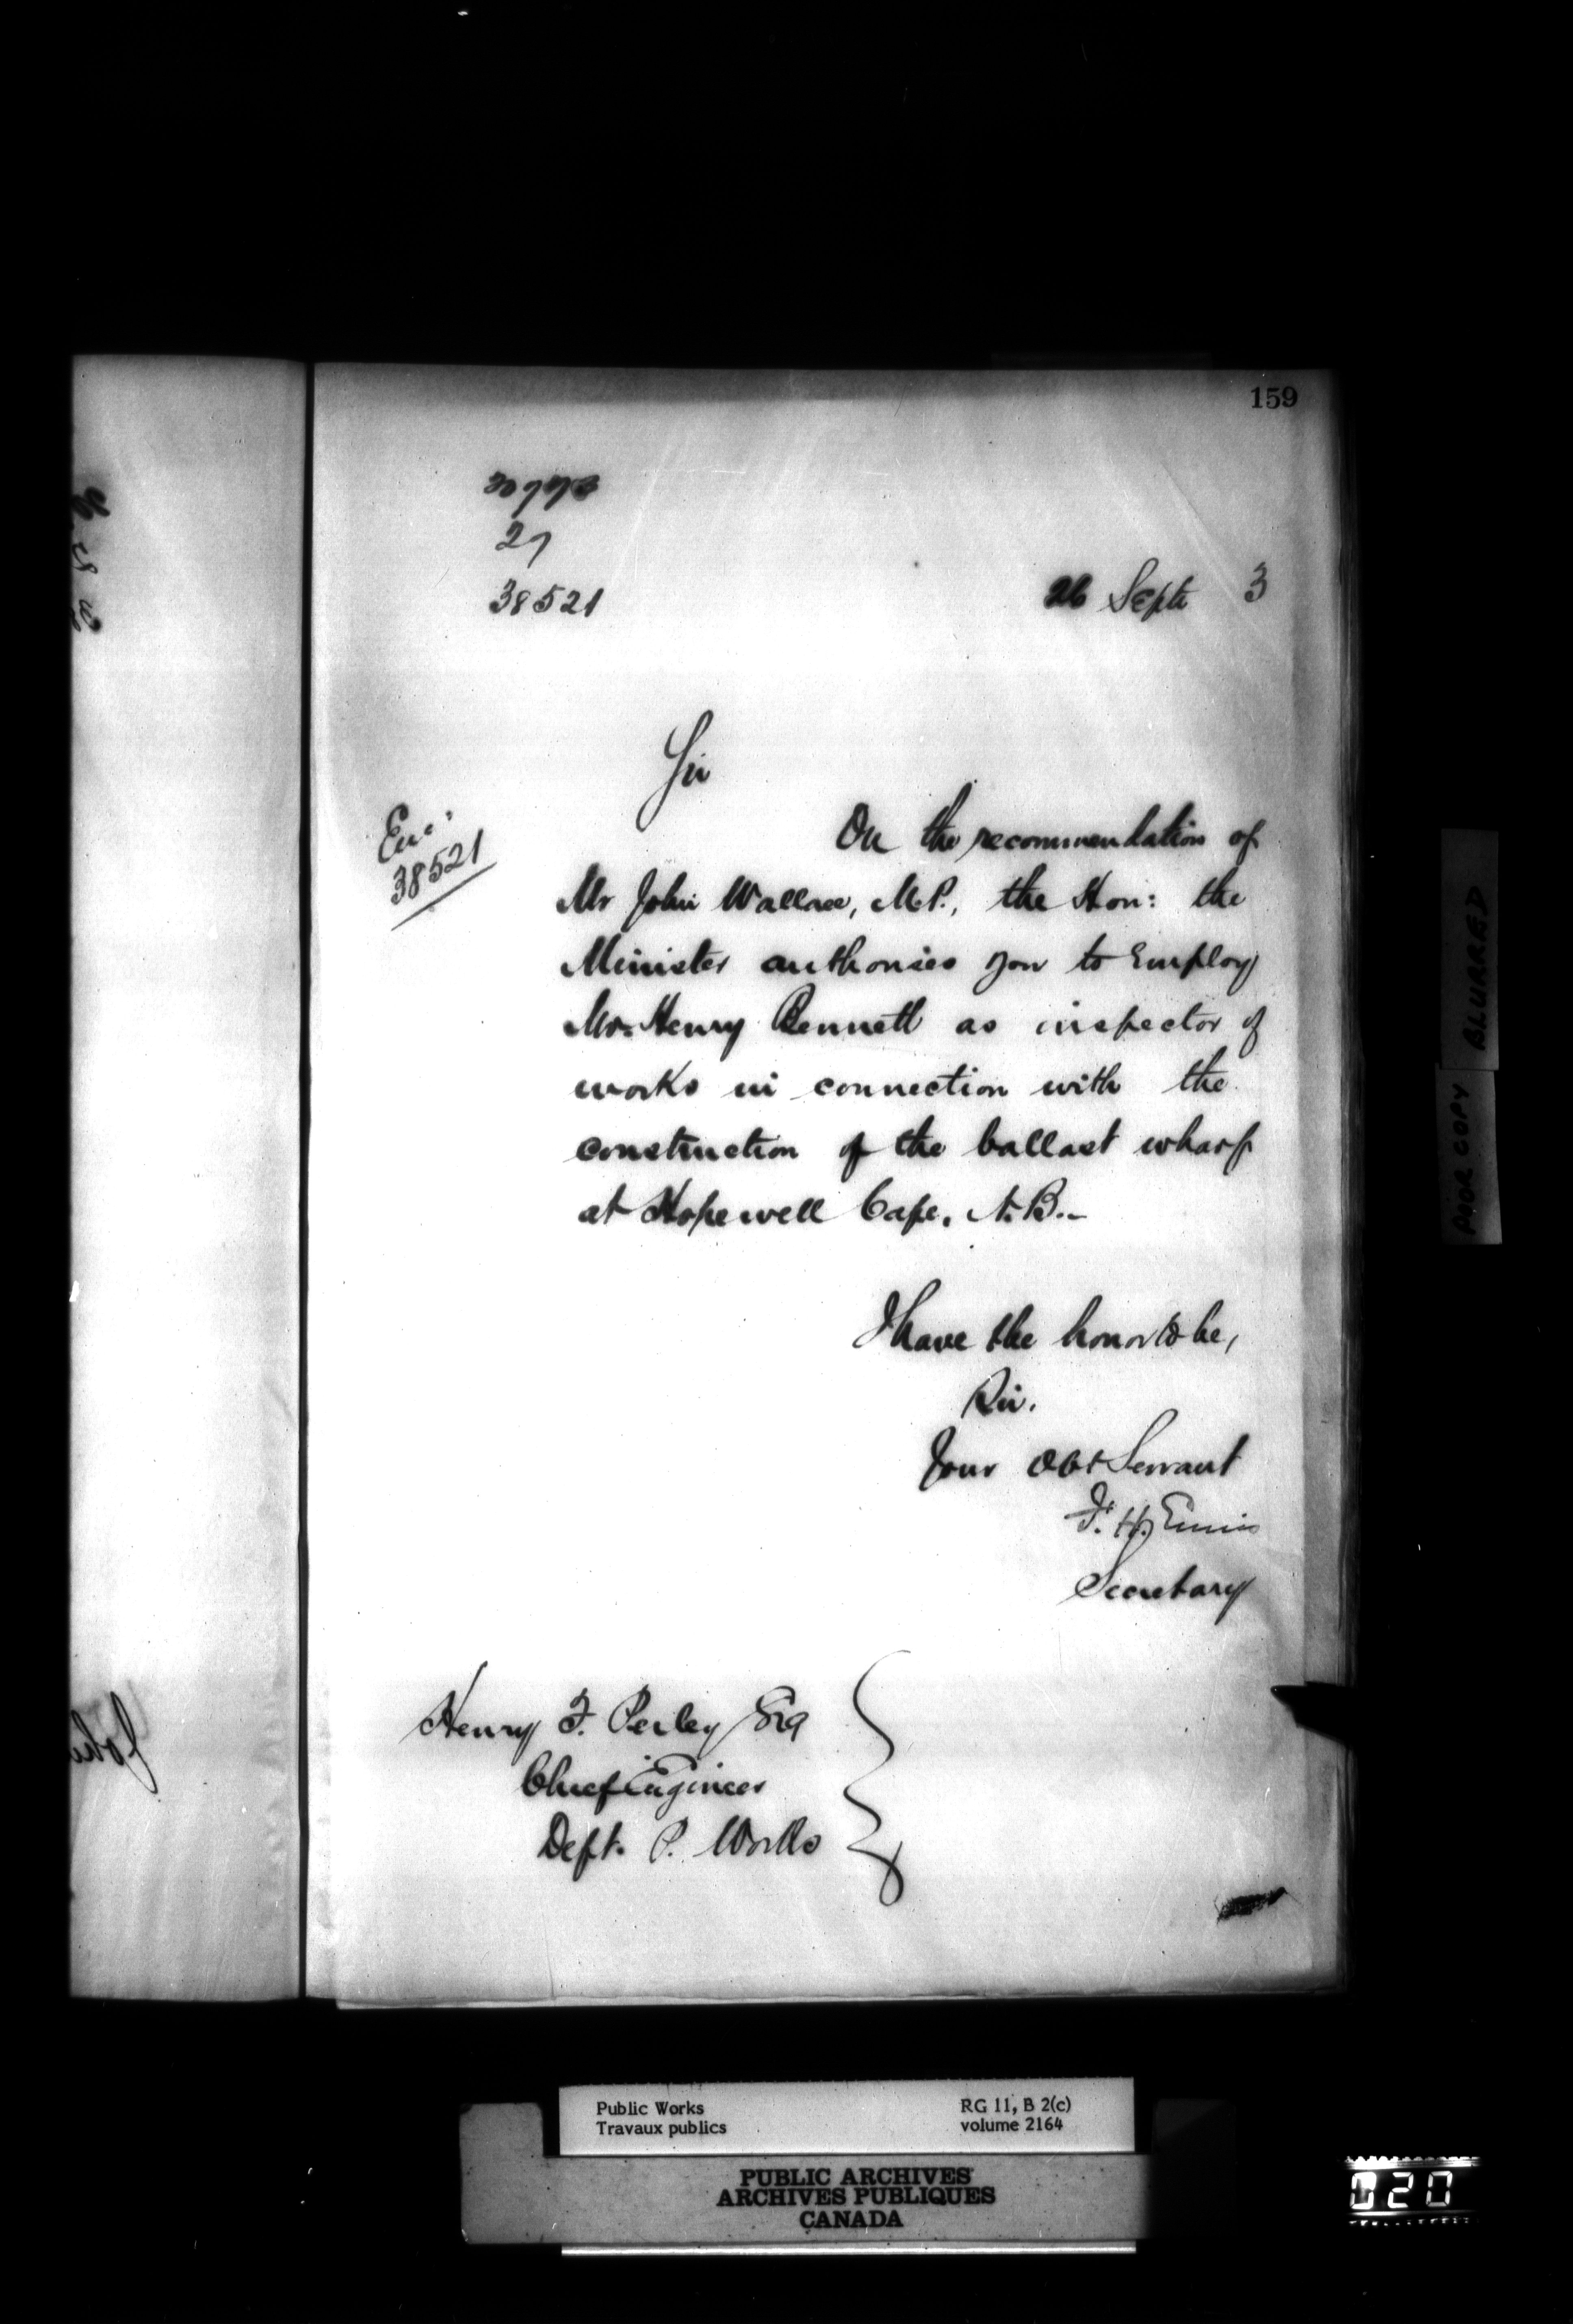 159
27
38521
26 Septr 3
Sir
Enc.
38521
On the recommendation of
Mr John Wallace, M.P., the Hon: the
Minister authorises you to employ
Mr. Henry Bennett as inspector of
works in connection with the
construction of the ballast wharf
at Hopewell Cape, N.B.-
I have the honor to be,
Sir.
Your Obt Servant
F. H. Ennis
Secretary
Henry F. Perley Esq
Chief Engineer
Dept. P. Works
POOR COPY BLURRED
Public Works
Travaux publics
RG 11, B 2(c)
volume 2164
PUBLIC ARCHIVES
ARCHIVES PUBLIQUES
CANADA
020